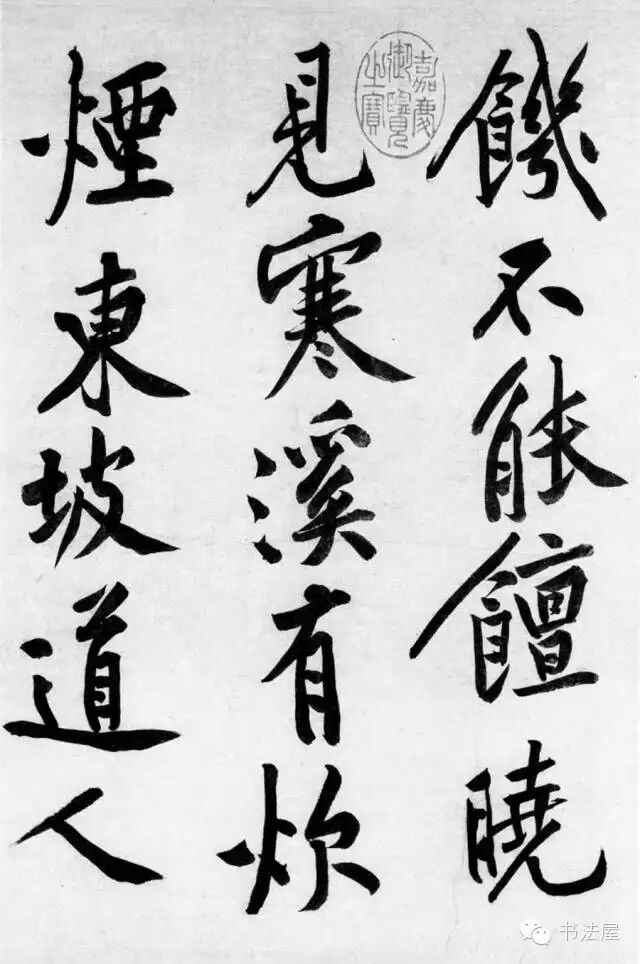 饑不能饘曉
嘉慶
御覽
之寶
見寒溪有炊
煙東坡道人
书法屋